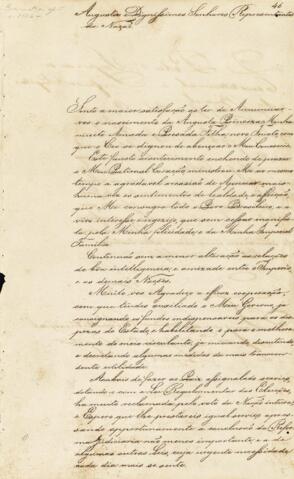 46
Augustos e Dignissimos Senhores Representantes
da Nação
Sinto a maior satisfação ao ter de Annunciar-
vos o nascimento da Augusta Princeza Minha
muito Amada e Presada Filha, novo fructo com
que o Ceo se dignou de abençoar o Meu Consorcio
Este fausto acontecimento enchendo de prazer
o Meu Paternal Coração ministrou-Me ao mesmo
tempo a agradavel occasião de Apreciar mais
huma vez os sentimentos de lealdade, e affeição
que Me consagra todo o Povo Brasileiro, e o
vivo interesse e regozijo, que sem cessar manifes-
ta pela Minha felicidade, e da Minha Imperial
Familia.
Continuão sem a menor alteração as relações
de boa intelligencia, e amizade entre o Imperio,
e as demais Nações.
Muito vos Agradeço a efficaz cooperação,
com que tendes auxiliado a Minha Coroa, já
consignando os fundos indispensaveis para as des-
pezas do Estado, e habilitando-a para o melhora-
mento do meio circulante, já iniciando, discutindo,
e decretando algumas medidas da mais transcen-
dente utilidade.
Acabais de fazer ao Paiz assignalado serviço
dotando-o com a Lei Regulamentar das Eleições,
ha muito reclamada pelo voto da Nação inteira;
e Espero que lhe prestareis igual serviço apres-
sando opportunamente a conclusão da Refor-
ma Judiciaria não menos importante, e a de
algumas outras Leis, cuja urgente necessidade
cada dia mais se sente.